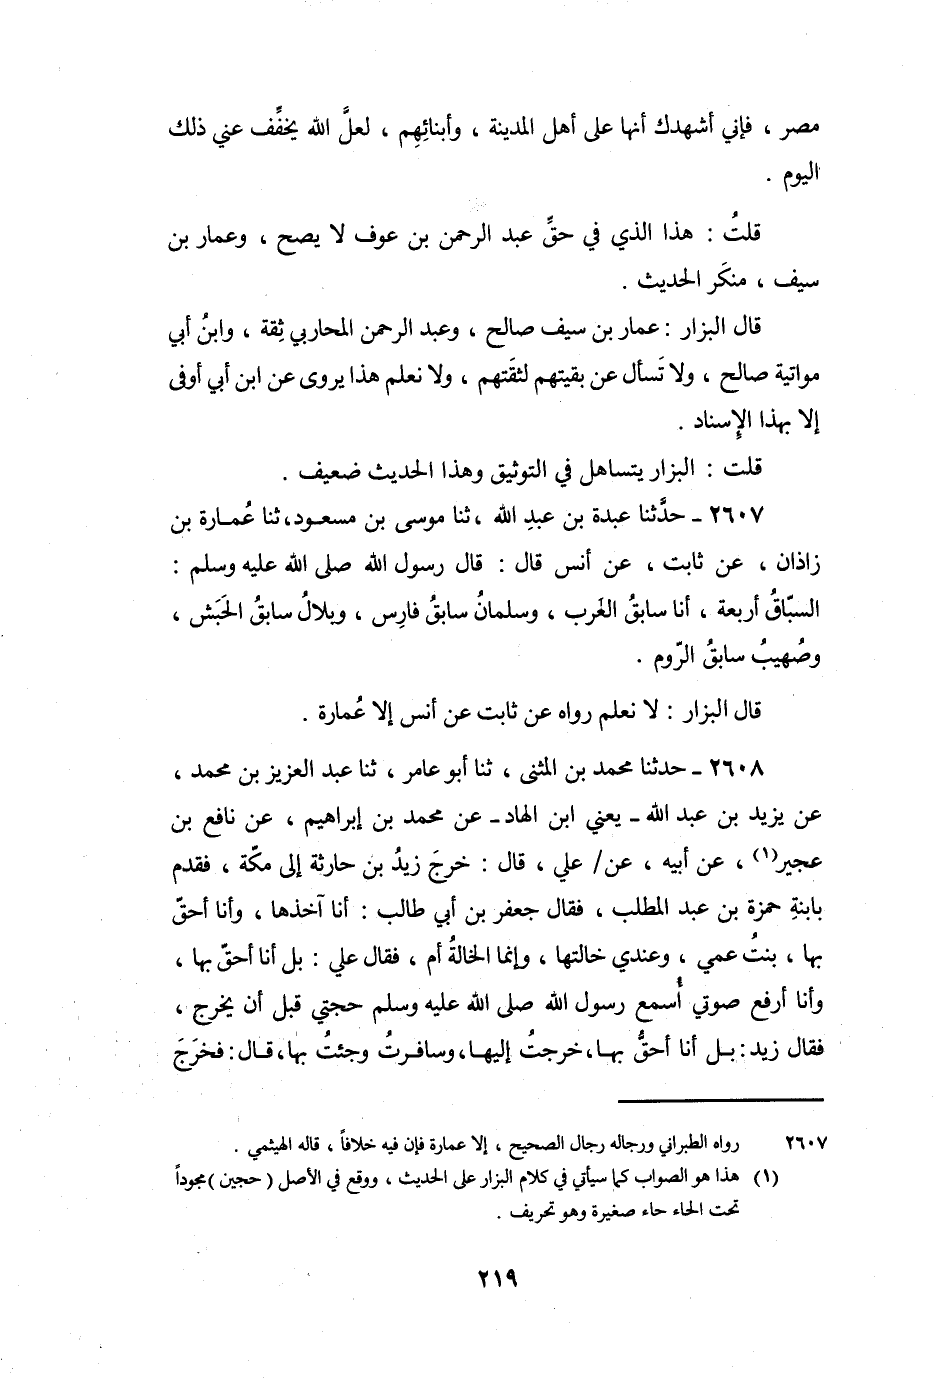 مصر ، فإني أشهدك أنها على أهل المدينة ، وأبنائِهِم ، لعلَّ الله يخفِّف عني ذلك
اليوم .
قلتُ : هذا الذي في حقِّ عبد الرحمن بن عوف لا يصح ، وعمار بن
سيف ، منكَر الحديث .
قال البزار : عمار بن سيف صالح ، وعبد الرحمن المحاربي ثِقة ، وابنُ أبي
مواتية صالح ، ولا تَسأل عن بقيتهم لثقَتهم ، ولا نعلم هذا يروى عن ابن أبي أوفى
إلا بهذا الإِسناد .
قلت : البزار يتساهل في التوثيق وهذا الحديث ضعيف .
٢٦٠٧ ـ حدَّثنا عبدة بن عبدِ الله ، ثنا موسى بن مسعود، ثنا عُمارة بن
زاذان ، عن ثابت ، عن أنس قال : قال رسول الله صلى الله عليه وسلم :
السبّاقُ أربعة ، أنا سابقُ الغَرب ، وسلمانُ سابقُ فارِس ، وبلالُ سابقُ الحَبَش ،
وصُهيبُ سابقُ الرّوم .
قال البزار : لا نعلم رواه عن ثابت عن أنس إلا عُمارة .
٢٦٠٨ ـ حدثنا محمد بن المثنى ، ثنا أبو عامر ، ثنا عبد العزيز بن محمد ،
عن يزيد بن عبد الله ـ يعني ابن الهاد ـ عن محمد بن إبراهيم ، عن نافع بن
عجير(١) ، عن أبيه ، عن/ علي ، قال : خرجَ زيدُ بن حارثة إلى مكّة ، فقدم
بابنةِ حمزة بن عبد المطلب ، فقال جعفر بن أبي طالب : أنا آخذها ، وأنا أحقّ
بها ، بنتُ عمي ، وعندي خالتها ، وإنما الخالةُ أم ، فقال علي : بل أنا أحقّ بها ،
وأنا أرفع صوتي أُسمع رسول الله صلى الله عليه وسلم حجتي قبل أن يخرج ،
فقال زيد: بل أنا أحقُّ بها، خرجتُ إليها، وسافرتُ وجئتُ بها، قال: فخرَجَ
٢٦٠٧ رواه الطبراني ورجاله رجال الصحيح ، إلا عمارة فإن فيه خلافاً ، قاله الهيثمي .
(١) هذا هو الصواب كما سيأتي في كلام البزار على الحديث ، ووقع في الأصل ( حجين ) مجوداً
تحت الحاء حاء صغيرة وهو تحريف .
٢١٩